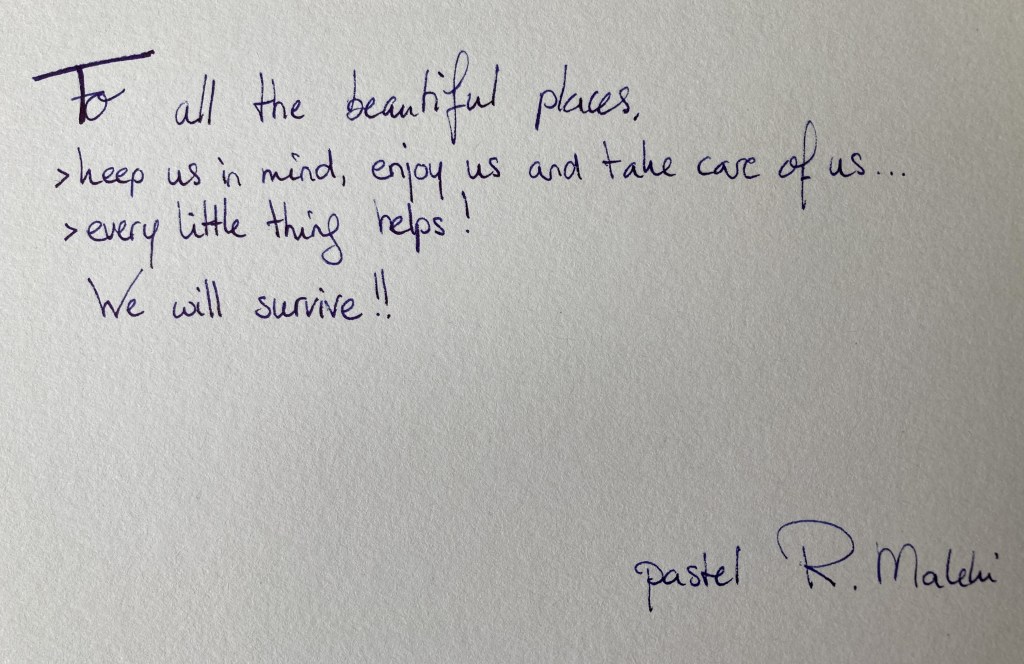 To all the beautiful places,
>keep us in mind, enjoy us and take care of us...
>every little thing helps!
We will survive!!
pastel R.